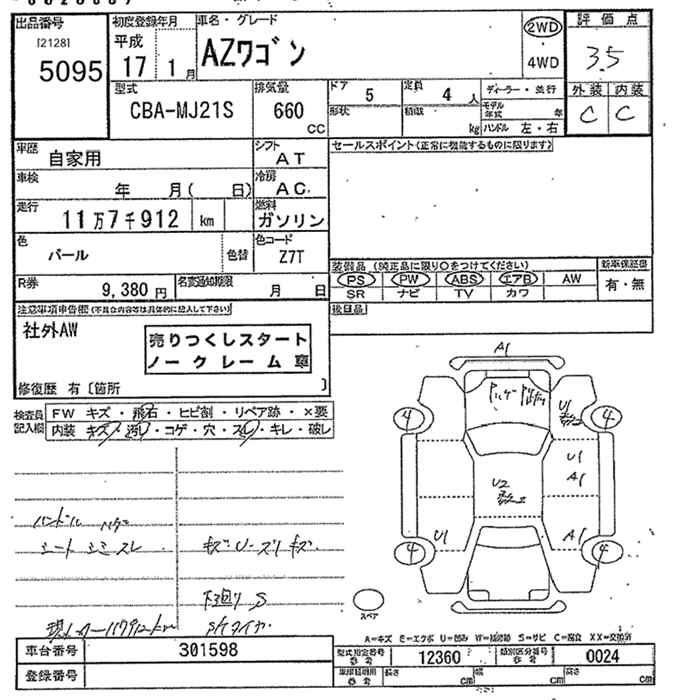 出品番号
[2128]
5095
初度登録年月
平成
17 1月
車名・グレード
AZワゴン
2WD
4WD
評価点
3.5
外装 内装
C C
型式
CBA-MJ21S
排気量
660
CC
ドア 5
定員 4 人
形状
積載 kg
ディーラー・並行
モデル年式 年
ハンドル 左・右
車歴 自家用
シフト AT
セールスポイント(正常に機能するものに限ります)
車検 年 月( 日)
冷房 AC
走行 11万7千912 km
燃料 ガソリン
色 パール
色替
色コード Z7T
装備品 (純正品に限り○をつけてください)
新車保証書
PS PW ABS エアB AW
有・無
SR ナビ TV カワ
R券 9,380円
名変通知期限 月 日
後日品
注意事項申告欄(不具合内容等は具体的に記入して下さい)
社外AW
売りつくしスタート
ノークレーム車
修復歴 有〔箇所 〕
検査員記入欄
FW キズ・飛石・ヒビ割・リペア跡・×要
内装 キズ・汚れ・コゲ・穴・スレ・キレ・破レ
A1
U1
4 4
U1
A1
U2
U1
A1
4 4
ハンドル ハゲ
シート シミ スレ
キズ・U・スリキズ
下廻り S
スペア
A=キズ E=エクボ U=凹み W=補修跡 S=サビ C=腐食 XX=交換済
車台番号 301598
型式指定番号 参考 12360
類別区分番号 参考 0024
登録番号
車庫証明用 参考
長さ cm
幅 cm
高さ cm